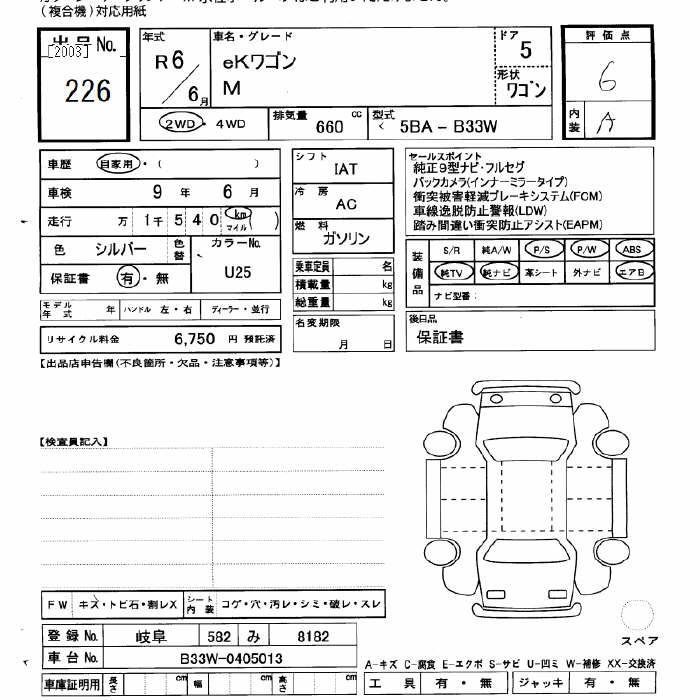 (複合機)対応用紙
出品No.
[2003]
226
年式
R6/6月
車名・グレード
eKワゴン
M
ドア
5
形状
ワゴン
2WD・4WD
排気量 660 cc
型式 < 5BA - B33W
評価点
6
内装
A
車歴 自家用・( )
車検 9年 6月
走行 万 1千 5 4 0 (km マイル)
色 シルバー 色替 カラーNo.
U25
保証書 有・無
モデル年式 年 ハンドル 左・右 ディーラー・並行
リサイクル料金 6,750 円 預託済
シフト
IAT
冷房
AC
燃料
ガソリン
乗車定員 名
積載量 kg
総重量 kg
名変期限
月 日
セールスポイント
純正9型ナビ・フルセグ
バックカメラ(インナーミラータイプ)
衝突被害軽減ブレーキシステム(FCM)
車線逸脱防止警報(LDW)
踏み間違い衝突防止アシスト(EAPM)
装備品
S/R 純A/W P/S P/W ABS
純TV 純ナビ 革シート 外ナビ エアB
ナビ型番:
後日品
保証書
【出品店申告欄(不良箇所・欠品・注意事項等)】
【検査員記入】
FW キズ・トビ石・割レX シート内装 コゲ・穴・汚レ・シミ・破レ・スレ
登録No. 岐阜 582 み 8182
車台No. B33W-0405013
車庫証明用 長さ cm 幅 cm 高さ cm
スペア
A-キズ C-腐食 E-エクボ S-サビ U-凹ミ W-補修 XX-交換済
工具 有・無 ジャッキ 有・無